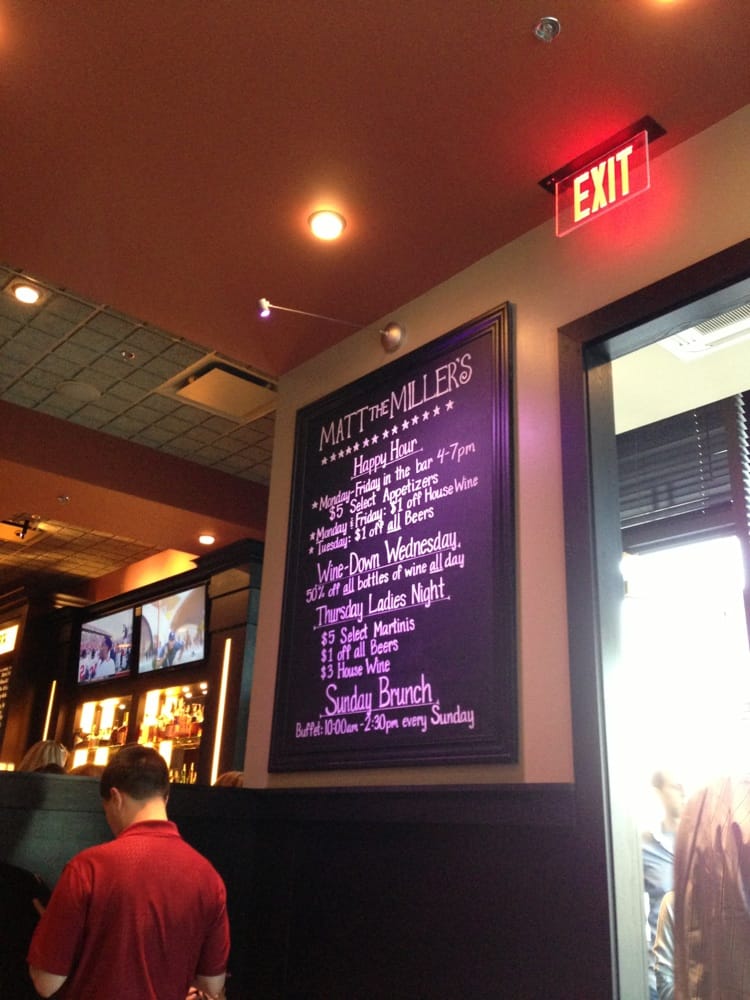 EXIT
MATT THE MILLER'S
Happy Hour
* Monday-Friday in the bar 4-7pm
$5 Select Appetizers
* Monday & Friday: $1 off House Wine
* Tuesday: $1 off all Beers
Wine-Down Wednesday
50% off all bottles of wine all day
Thursday Ladies Night
$5 Select Martinis
$1 off all Beers
$3 House Wine
Sunday Brunch
Buffet: 10:00am-2:30pm every Sunday